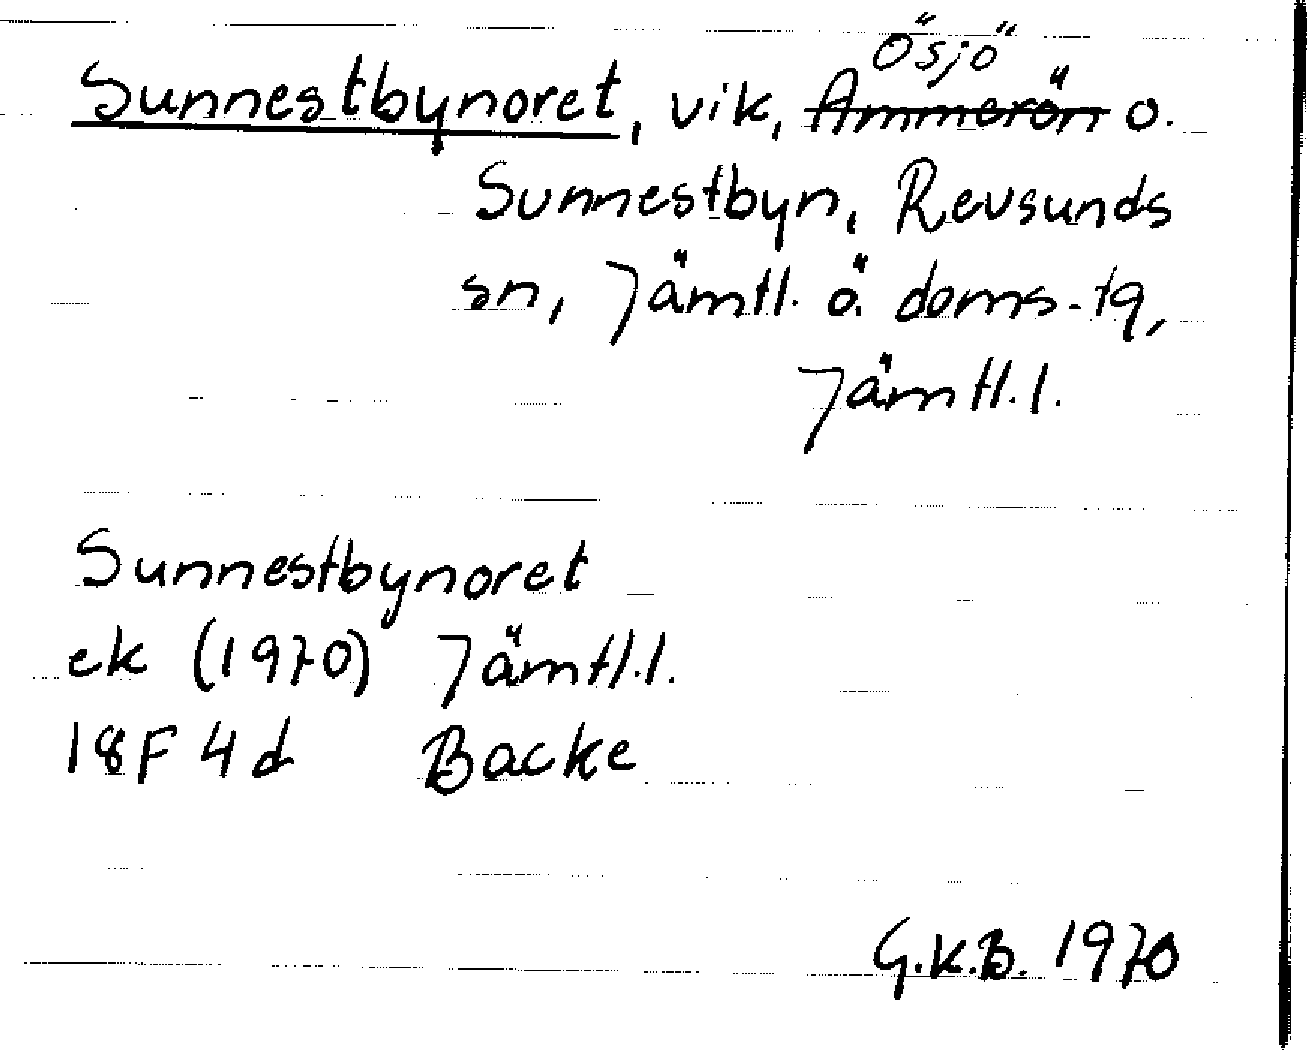 Ösjö
Sunnestbynoret, vik, Ammerön o.
Sunnestbyn, Revsunds
sn, Jämtl. ö. doms-tg,
Jämtl.l.
Sunnestbynoret
ek (1970) Jämtl.l.
18F 4d Backe
G.K.B. 1970